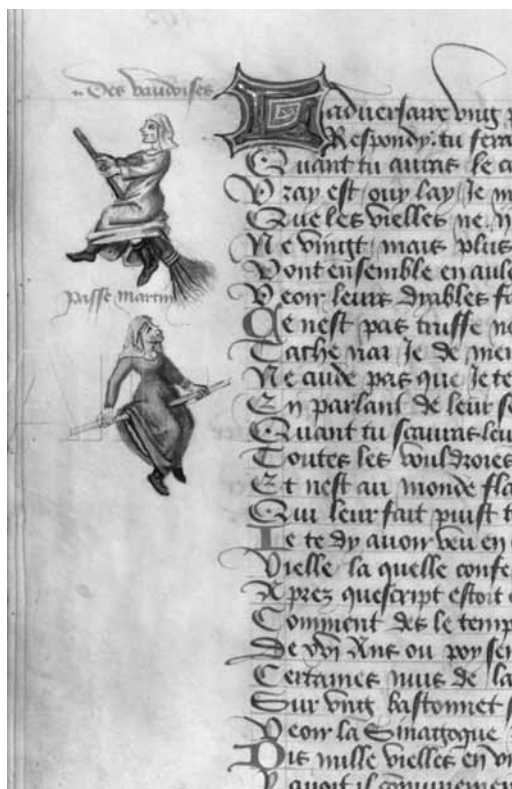 Des vaudoises
passe martin
Ladversaire vng
Respondy: tu sera
Quant tu auras le
Vray est ouy lay Je
Que les vielles ne
Ne vingt mais plus
Vont ensemble en
Veoir leurs dyables
Ce nest pas truffe
Tache nay Je de
Ne cude pas que Je te
En parlant de leur
Quant tu scauras leur
Toutes les vouldroies
Et nest au monde
Qui leur fait puist
Je te dy auoir veu en
Vielle la quelle confe
Aprez quescript estoit
Comment dez le temp
De xvi Ans ou poy
Certaines nuis de la
Sur vng bastonnet
Veoir la Sinagogue
Dix mille vielles en
Y auoit il